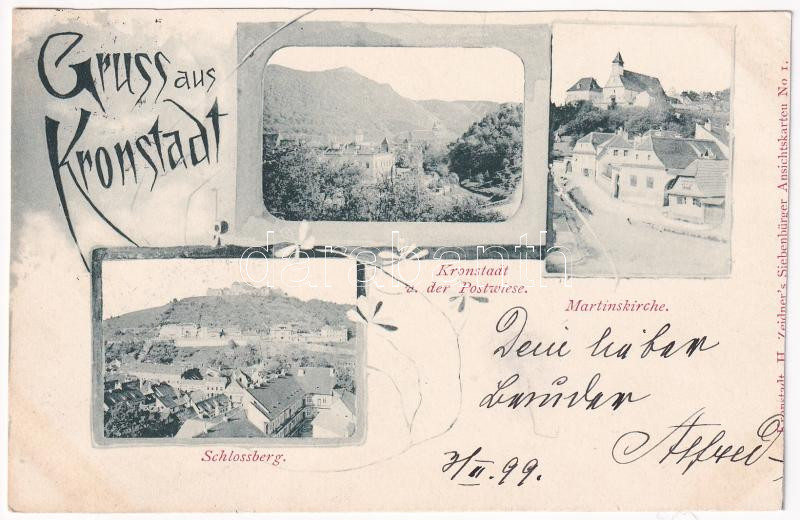 Gruss aus
Kronstadt
Kronstadt
v. der Postwiese.
Martinskirche.
Schlossberg.
Dein lieber
Bruder
Alfred
3/II. 99.
Kronstadt II Zeidner's Siebenbürger Ansichtskarten No 1.
darabanth